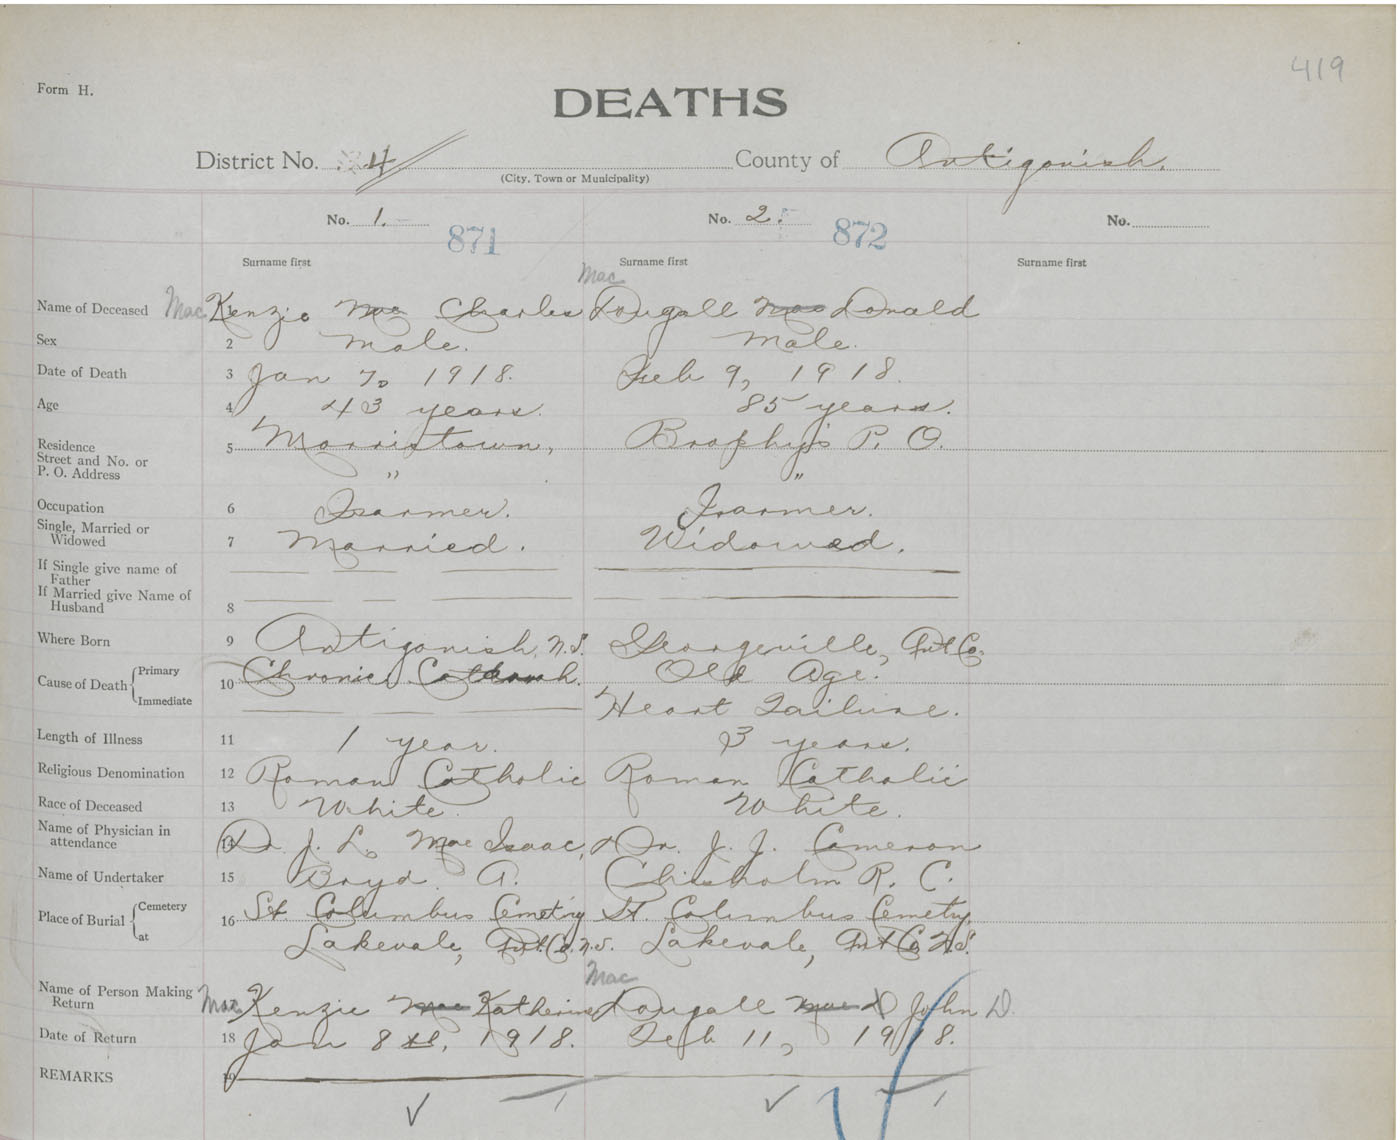 419
Form H.
DEATHS
District No. 4 County of Antigonish.
(City, Town or Municipality)
No. 1. No. 2. No.
871 872
Surname first Surname first Surname first
Mac
Name of Deceased Mac 1 Kenzie Mac Charles Dougall Mac Donald
Sex 2 Male. Male.
Date of Death 3 Jan 7, 1918. Feb 9, 1918.
Age 4 43 years. 85 years.
Residence 5 Morristown, Brophy's P. O.
Street and No. or
P. O. Address " "
Occupation 6 Farmer. Farmer.
Single, Married or
Widowed 7 Married. Widowed.
If Single give name of
Father
If Married give Name of
Husband 8
Where Born 9 Antigonish, N.S. Georgeville, Ant Co.
Cause of Death Primary 10 Chronic Catarrh. Old Age.
Immediate Heart Failure.
Length of Illness 11 1 year. 3 years.
Religious Denomination 12 Roman Catholic Roman Catholic
Race of Deceased 13 White. White.
Name of Physician in
attendance 14 Dr. J. L. MacIsaac, Dr. J. J. Cameron
Name of Undertaker 15 Boyd A. Chisholm R. C.
Place of Burial Cemetery 16 St Columbus Cemetry St. Columbus Cemetry,
at Lakevale, Ant. Co. N.S. Lakevale, Ant Co N.S.
Mac
Name of Person Making
Return Mac Kenzie Mac Katherine Dougall Mac D John D.
Date of Return 18 Jan 8th, 1918. Feb 11, 1918.
REMARKS 19